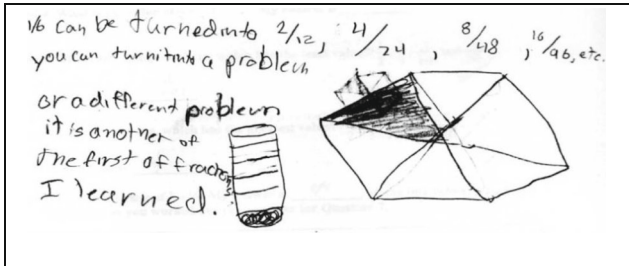 1/6 can be turned into 2/12, 4/24, 8/48, 16/96, etc.
you can turn it into a problem
or a different problem
it is another of
the first of fractions
I learned.